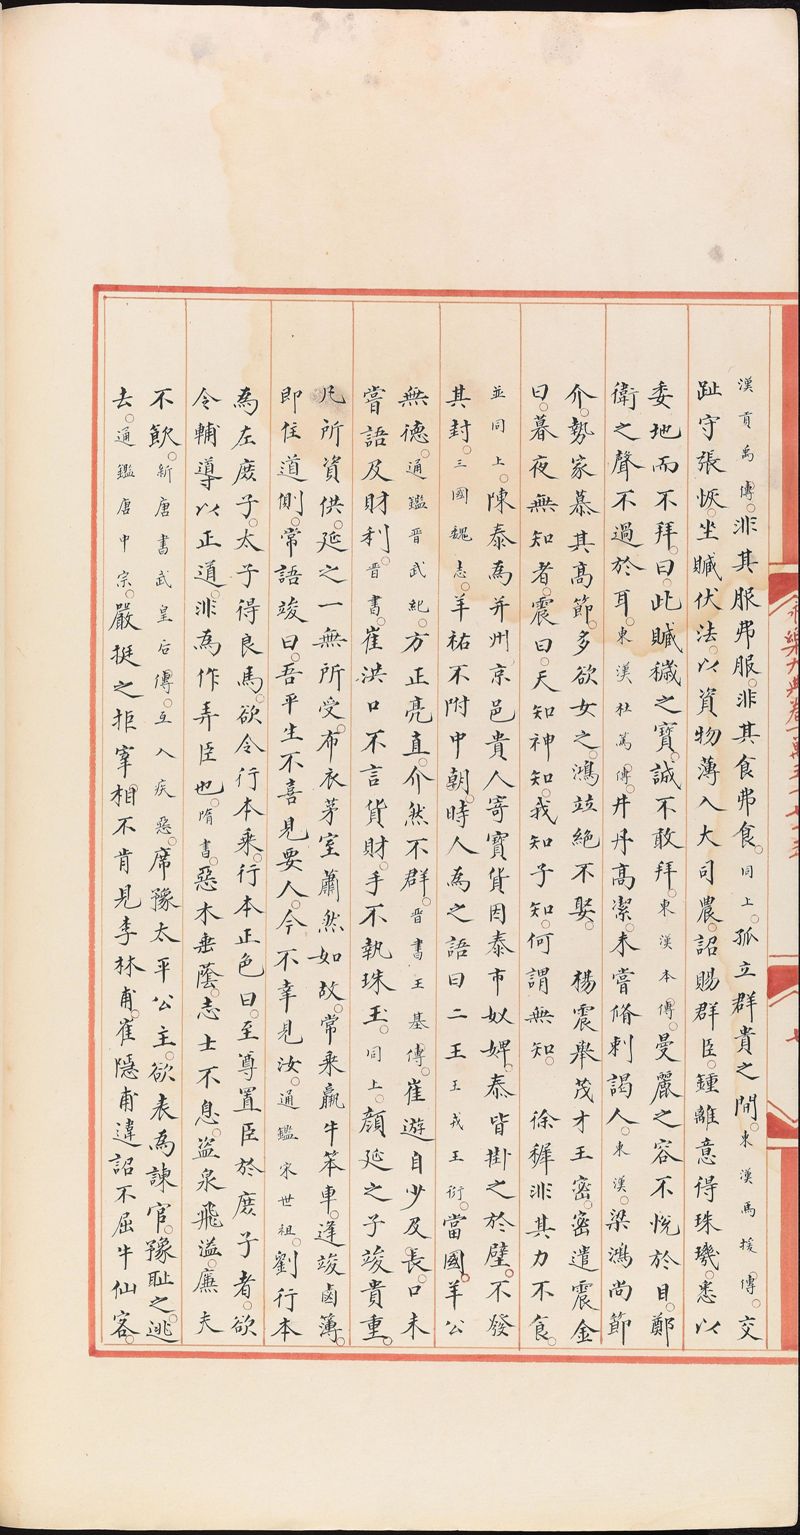 漢貢禹傳。非其服弗服。非其食弗食。同上。孤立群貴之間。東漢馬援傳。交
趾守張恢。坐贓伏法。以資物薄入大司農。詔賜群臣。鍾離意得珠璣。悉以
委地而不拜。曰。此贓穢之寶。誠不敢拜。東漢本傳。曼麗之容不悅於目。鄭
衛之聲不過於耳。東漢杜篤傳。井丹高潔。未嘗脩刺謁人。東漢。梁鴻尚節
介。勢家慕其高節。多欲女之。鴻竝絕不娶。 楊震舉茂才王密。密遣震金
曰。暮夜無知者。震曰。天知神知。我知子知。何謂無知。 徐穉非其力不食。
並同上。陳泰為并州京邑貴人寄寶貨因泰市奴婢。泰皆掛之於壁。不發
其封。三國魏志。羊祐不附中朝。時人為之語曰二王王戎王衍。當國。羊公
無德。通鑑晉武紀。方正亮直。介然不群。晉書王基傳。崔遊自少及長。口未
嘗語及財利。晉書。崔洪口不言貨財。手不執珠玉。同上。顏延之子竣貴重。
凡所資供。延之一無所受。布衣茅室蕭然如故。常乘羸牛笨車。逢竣鹵簿。
即住道側。常語竣曰。吾平生不喜見要人。今不幸見汝。通鑑宋世祖。劉行本
為左庶子。太子得良馬。欲令行本乘。行本正色曰。至尊置臣於庶子者。欲
令輔導以正道。非為作弄臣也。隋書。惡木垂蔭。志士不息。盜泉飛溢。廉夫
不飲。新唐書武皇后傳。互入疾惡。席豫太平公主。欲表為諫官。豫恥之。逃
去。通鑑唐中宗。嚴挺之拒宰相不肯見李林甫。崔隱甫違詔不屈牛仙客。
永樂大典卷